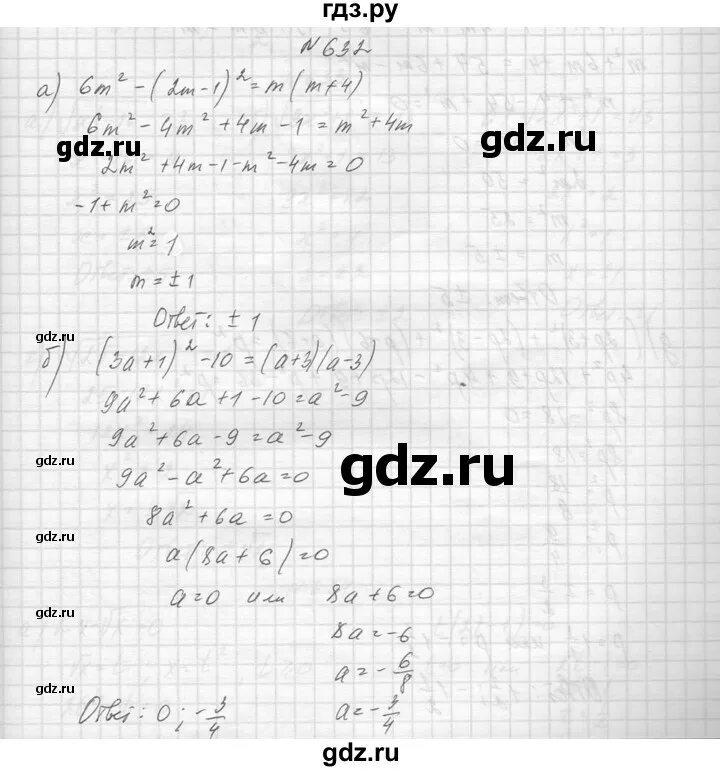 гдз.ру
N 632
а) 6m² - (2m-1)² = m(m+4)
6m² - 4m² + 4m - 1 = m² + 4m
gdz.ru
gdz.ru
2m² + 4m - 1 - m² - 4m = 0
-1 + m² = 0
m² = 1
m = ± 1
Ответ: ± 1
gdz.ru
б) (3a+1)² - 10 = (a+3)(a-3)
9a² + 6a + 1 - 10 = a² - 9
9a² + 6a - 9 = a² - 9
gdz.ru
9a² - a² + 6a = 0
gdz.ru
8a² + 6a = 0
gdz.ru
a(8a + 6) = 0
a = 0 или 8a + 6 = 0
gdz.ru
8a = -6
a = - 6/8
gdz.ru
Ответ: 0; - 3/4
a = - 3/4
gdz.ru